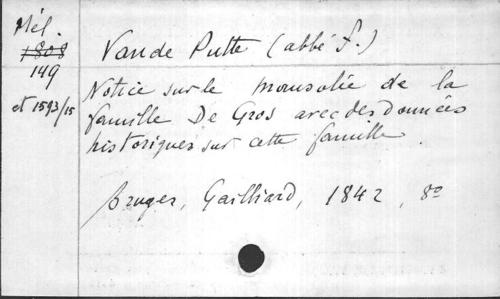 Mél.
1808
149
et 1593/15
Vande Putte (abbé F.)
Notice sur le mausolée de la
famille De Gros avec des données
historiques sur cette famille.
Bruges, Gailliard, 1842, 8º